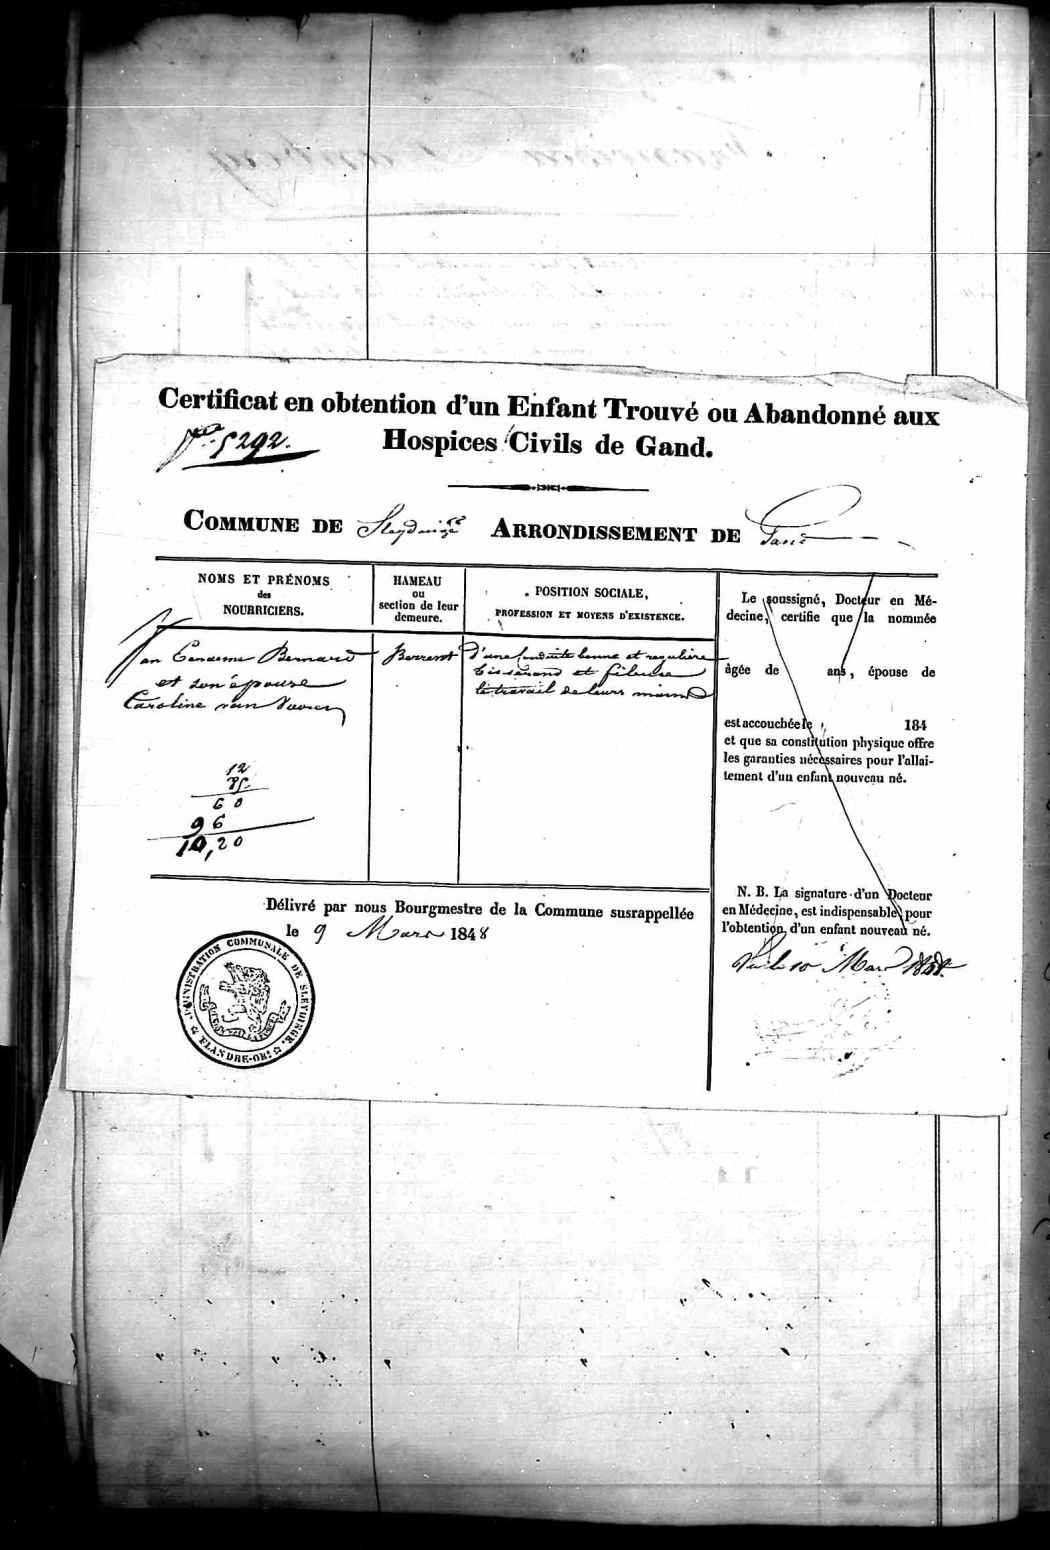 Certificat en obtention d'un Enfant Trouvé ou Abandonné aux
Hospices Civils de Gand.
N° 5292.
COMMUNE DE Sleydinge ARRONDISSEMENT DE Gand
NOMS ET PRÉNOMS
des
NOURRICIERS.
HAMEAU
ou
section de leur
demeure.
POSITION SOCIALE,
PROFESSION ET MOYENS D'EXISTENCE.
Jan Bernard
et son épouse
Caroline van
d'une conduite bonne et régulière
tisserand et fileuse
le travail de leurs mains
12
85
60
96
10,20
Le soussigné, Docteur en Mé-
decine, certifie que la nommée
âgée de ans, épouse de
est accouchée le 184
et que sa constitution physique offre
les garanties nécessaires pour l'allai-
tement d'un enfant nouveau né.
N. B. La signature d'un Docteur
en Médecine, est indispensable pour
l'obtention d'un enfant nouveau né.
Vu le 10 Mars 1848.
Délivré par nous Bourgmestre de la Commune susrappellée
le 9 Mars 1848
ADMINISTRATION COMMUNALE DE SLEYDINGE.
FLANDRE-OR.